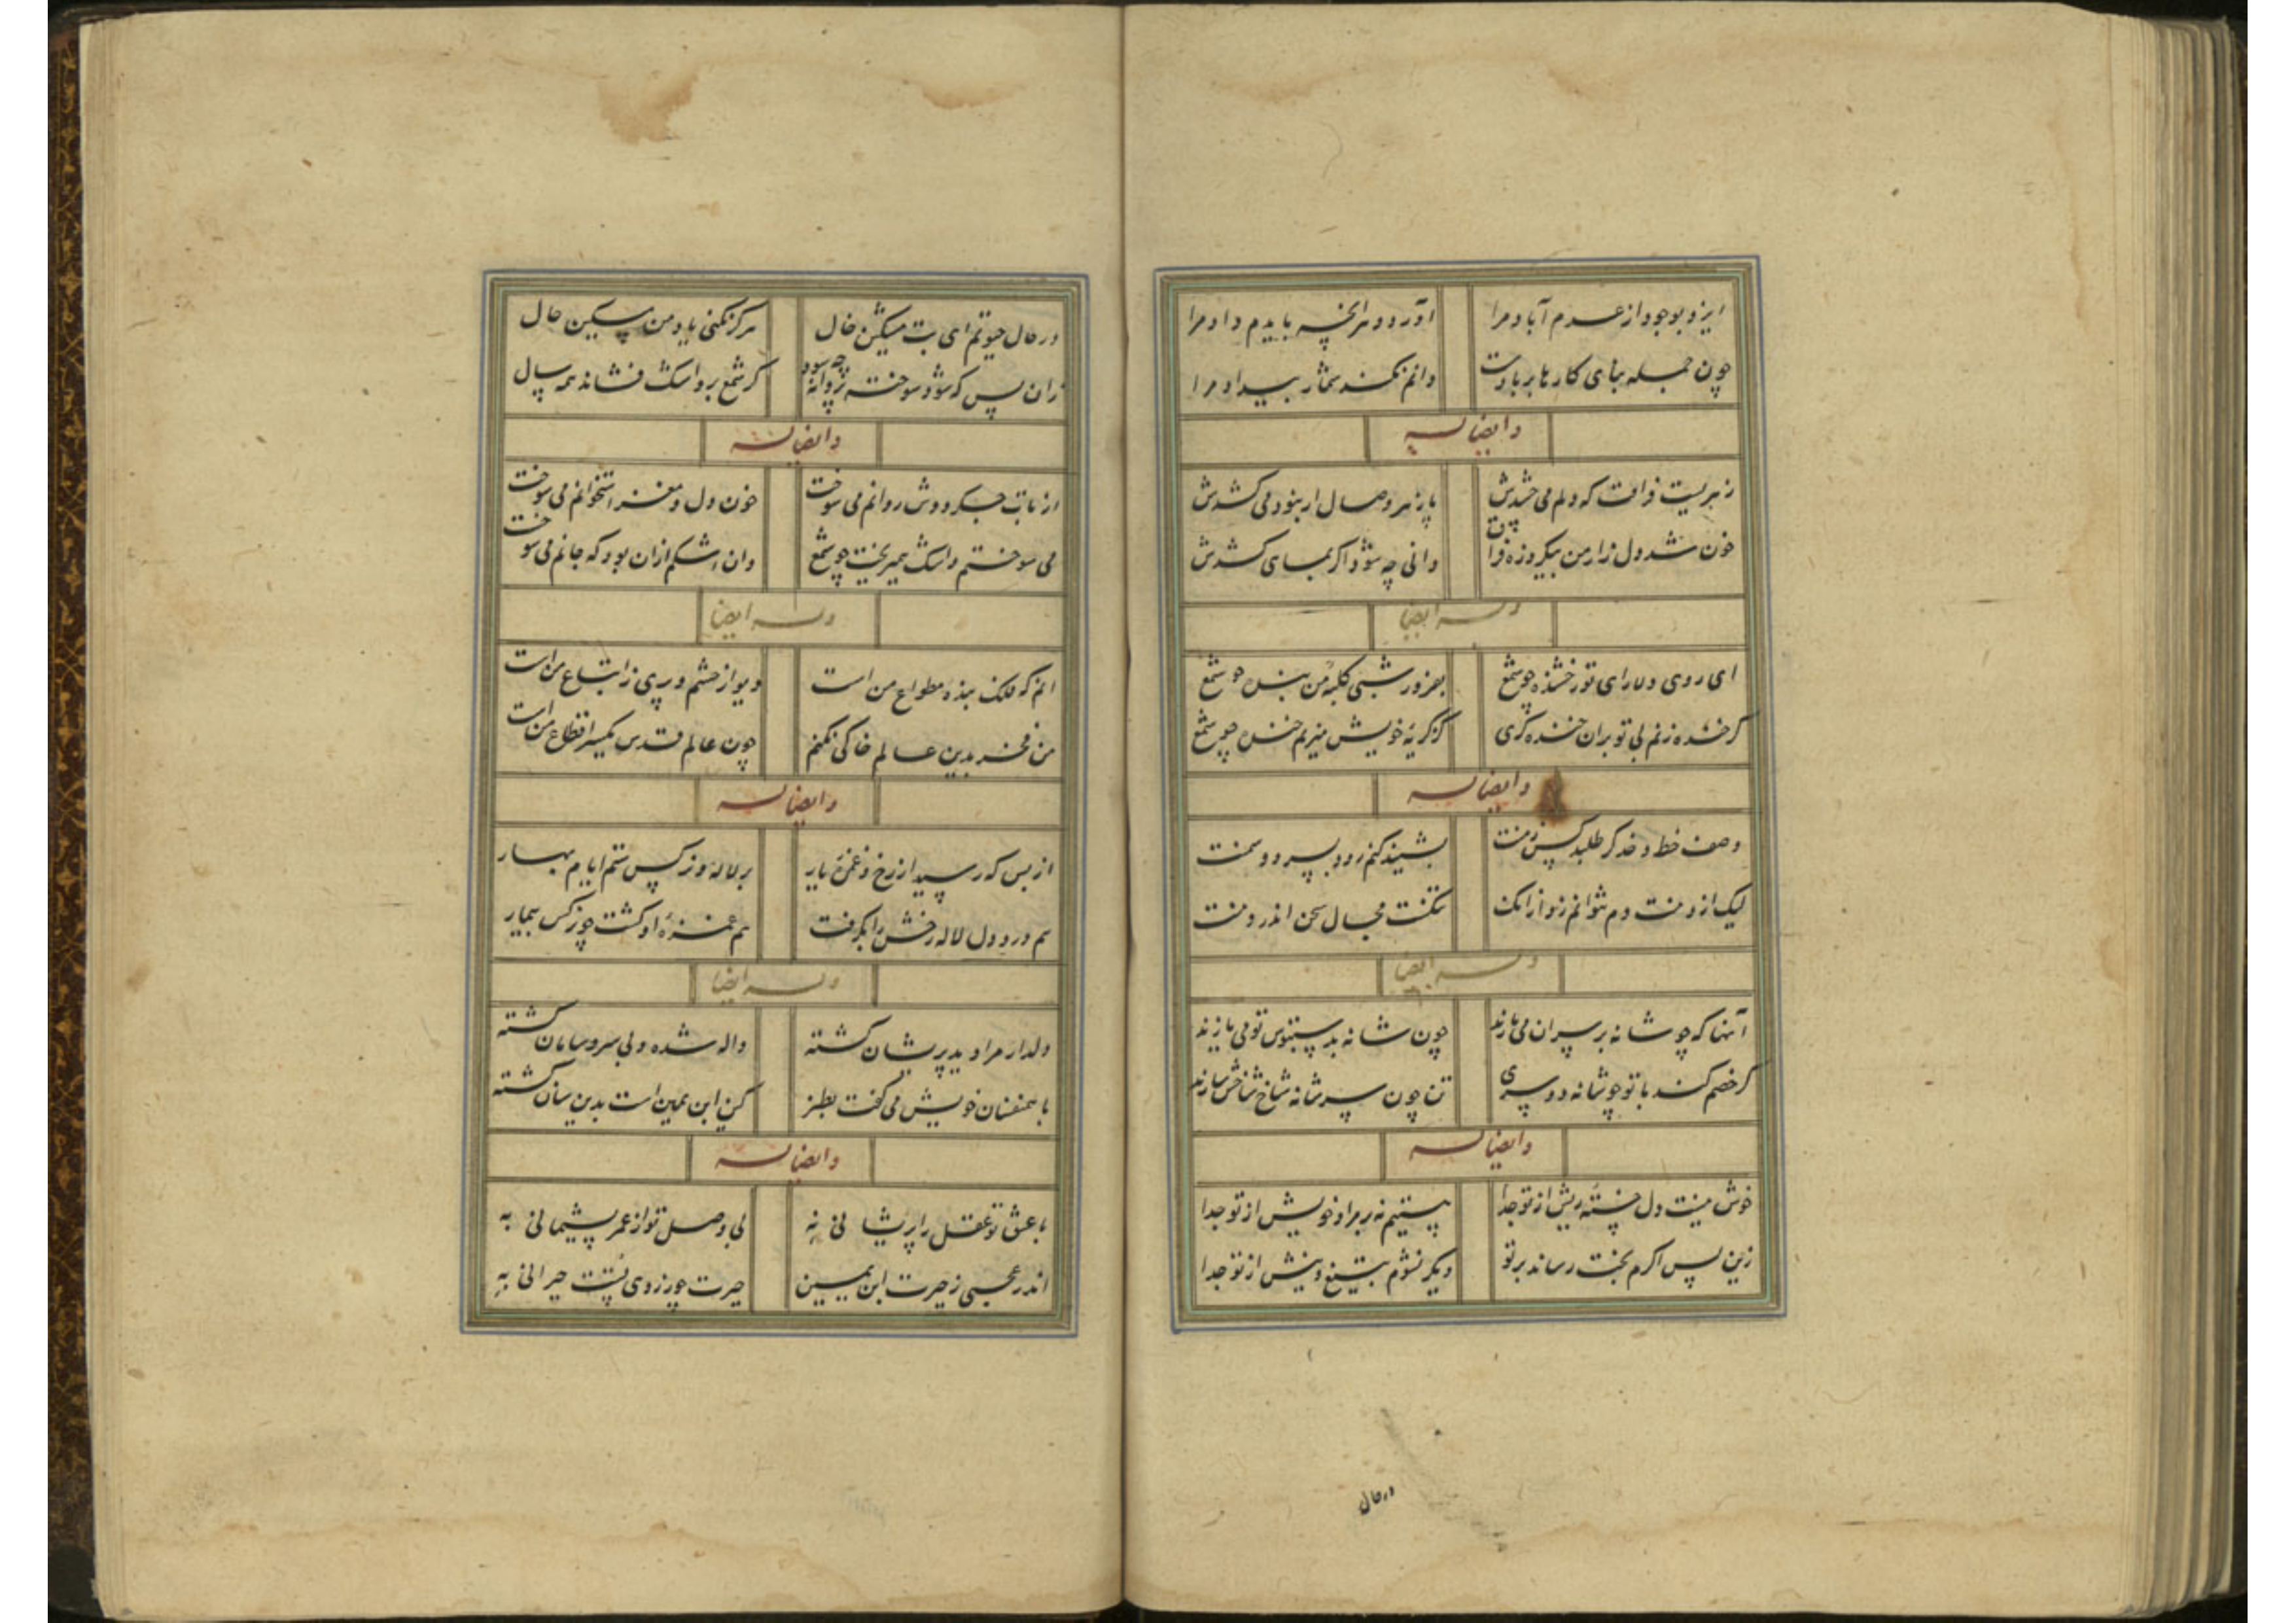 ایزد بوجود از عدم آباد مرا
آورد و هر آنچه بایدم داد مرا
چون جمله بنای کارها بر بادست
دانم نکند شمار بیداد مرا
و ایضا له
زهریست فراقت که دلم می چشدش
پازهر وصال ار بنود می کشدش
خون شد دل زار من بیکروزه فراق
دانی چه شود اگر بمبای کشدش
وله ایضا
ای روی دلارای تو رخشنده چو شمع
بفروز شبی کلبه من بنده چو شمع
گر خنده زنم بی تو بران خنده گری
کز گریه خویش میزنم خنده چو شمع
و ایضا له
وصف خط و خد گر طلبد کس ز منت
بنشینم
لیک از دهنت دم نتوانم زد از آنک
تنگست مجال سخن اندر دهنت
وله ایضا
آنها که چو شانه بر سر آن می نازند
چون شانه بد تو می یازند
گر خصم کند با تو چو شانه دو سری
تن چون سر شانه شاخ شاخش سازند
و ایضا له
خوش نیست دل خسته ریش از تو جدا
نیستیم نه بر مراد خویش از تو جدا
زین پس اگرم بخت رساند بر تو
دیگر نشوم بتیغ و نیش از تو جدا
در حال
در حال حیوتم ای بت مشکین خال
هرگز نکنی یاد من مسکین حال
زان پس که شود سوخته پروانه چه سود
گر شمع برو اشک فشاند همه سال
و ایضا له
از تاب جگر دوش روانم می سوخت
خون دل و مغز استخوانم می سوخت
می سوختم و اشک همیریخت چو شمع
وان اشکم ازان بود که جانم می سوخت
وله ایضا
انم که فلک بنده مطواع من است
دیو از حشم و پری ز اتباع من است
من فخر بدین عالم خاکی نکنم
چون عالم قدس یکسر اقطاع من است
و ایضا له
از بس که رسید از رخ و غمزه یار
بر لاله و نرگس ستم ایام بهار
هم درد دل لاله رخش را بگرفت
هم غمزه او گشت چو نرگس بیمار
وله ایضا
دلدار مرا دید پریشان گشته
واله شده و بی سر و سامان گشته
با همنفسان خویش می گفت بطنز
کین ابن یمین است بدین سان گشته
و ایضا له
با عشق تو عقل را پریشانی به
بی وصل تو از عمر پشیمانی به
اندر عجبی ز حیرت ابن یمین
حیرت چو ز روی تست حیرانی به